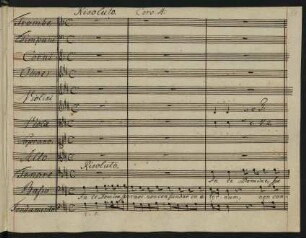 Risoluto. Coro. A.
Trombe
Timpani
Corni
Oboe
Violini
Viola
Soprano
Alto
Risoluto.
Tenore
In te Domine, spe
Basso
In te Domine speravi non confundar in æternum, non con
Fundamento